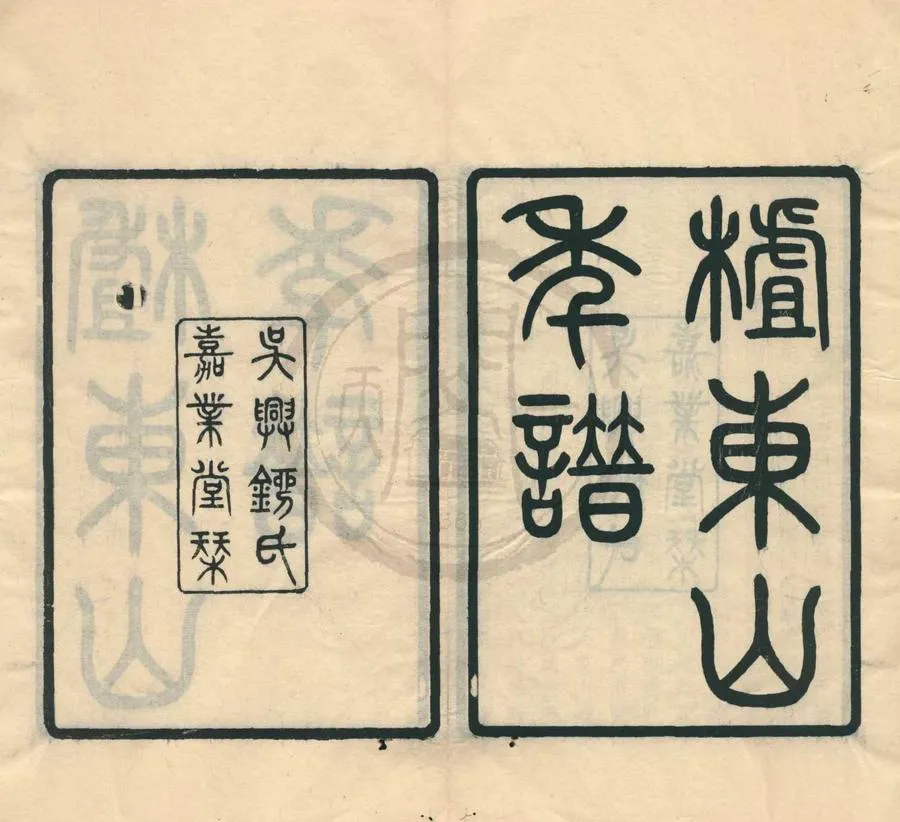 樝東山
年譜
吳興鐂氏
嘉業堂栞